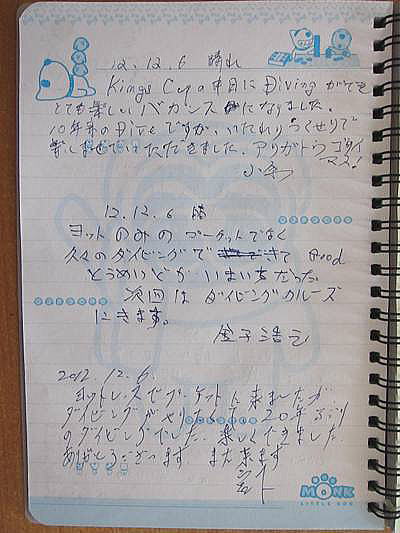 12.12.6 晴れ
Kings Cupの中日にDivingができ
とても楽しいバカンスになりました。
10年来のDiveですが、いたれりつくせりで
楽しませていただきました。アリガトウゴザイ
マス!
12.12.6 晴
ヨットのみのプーケットでなく
久々のダイビングできて Good
とうめいどがいまいちだった
次回はダイビングクルーズ
にきます。
金子
2012.12.6.
ヨットレースでプーケットに来ましたが
ダイビングがやりたくて 20年ぶり
のダイビングでした. 楽しくできました
ありがとうございます また来ます
MONK
LITTLE DOG